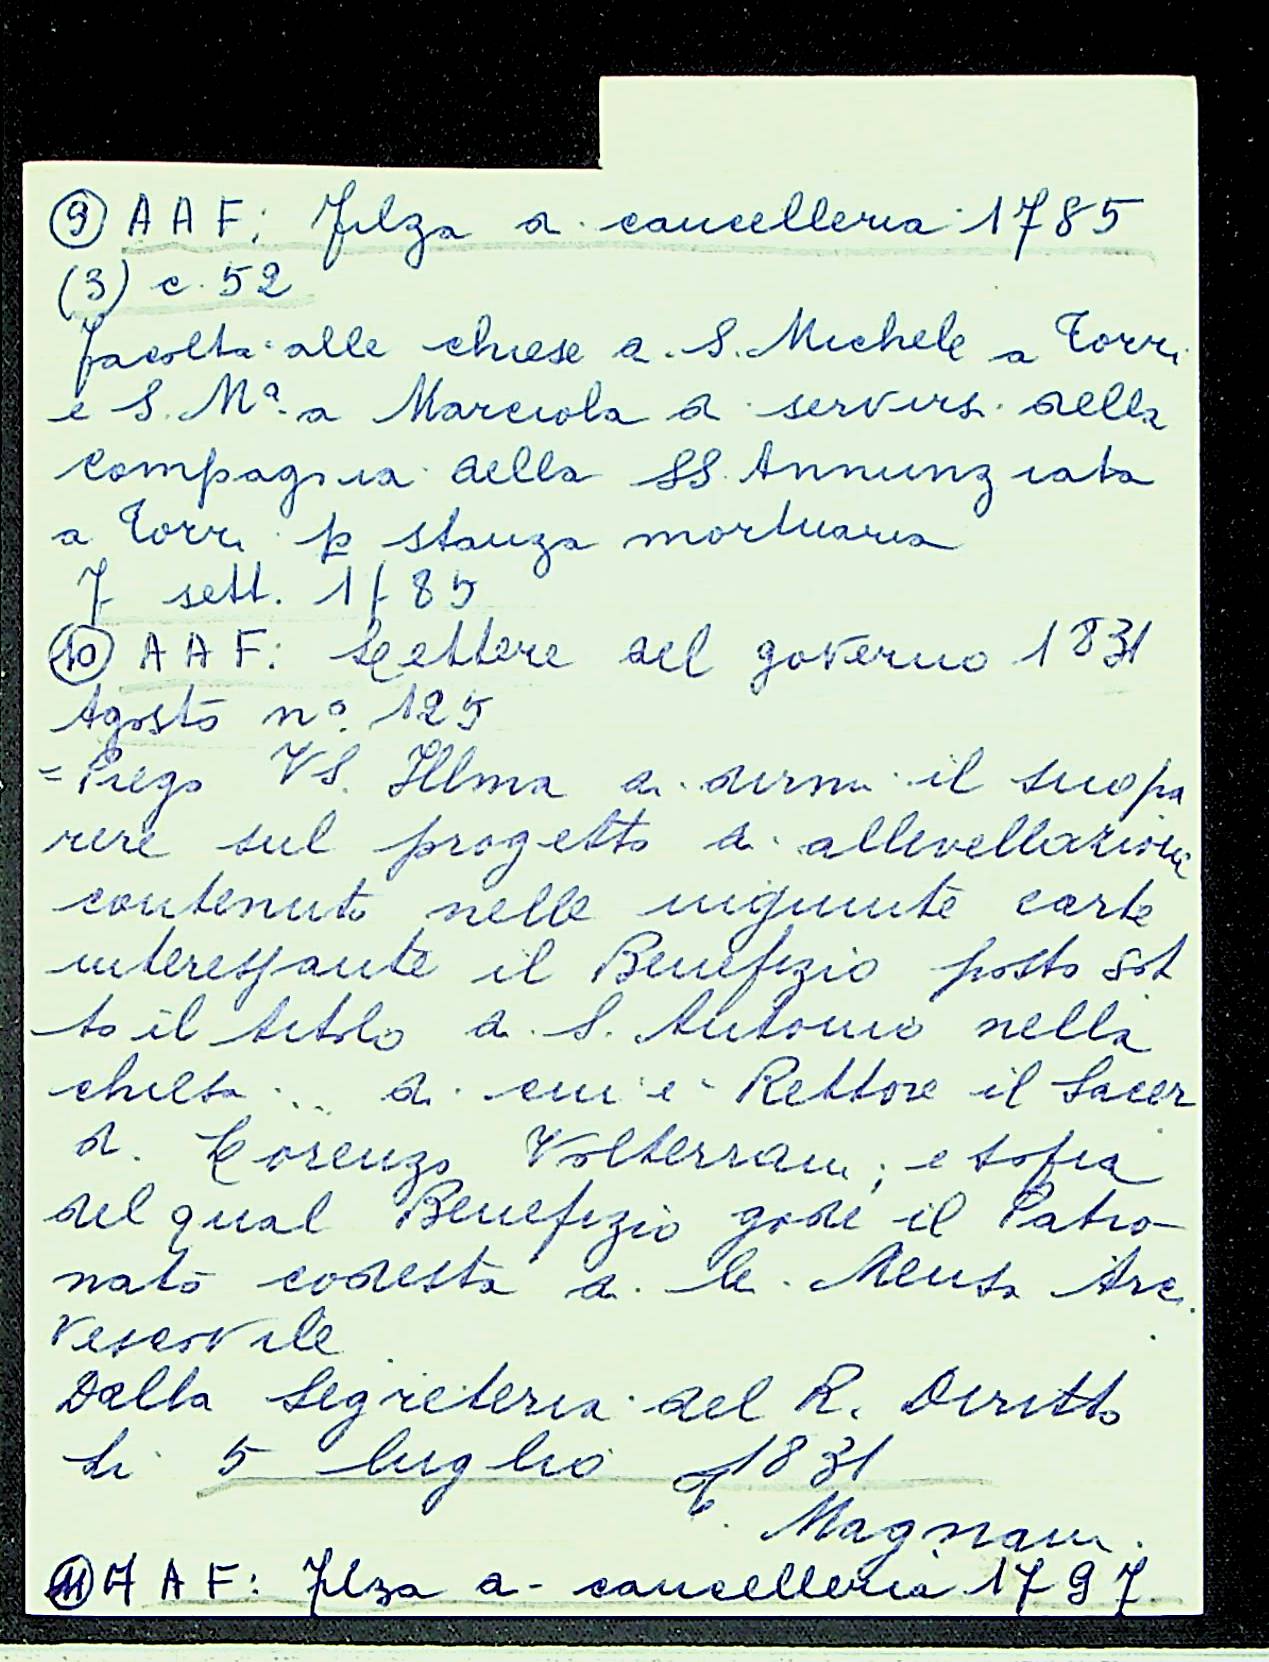 9 A A F: Filza di cancelleria 1785
(3) c. 52
facolta alle chiese di S. Michele a Torri
e S. Mª a Marciola di servirsi della
compagnia della SS. Annunziata
a Torri p stanza mortuaria
7 sett. 1785
10 A A F: Lettere del governo 1831
Agosto nº 125
= Prego VS. Illma di dirmi il suo pa
rere sul progetto di allivellazione
contenuto nelle ingiunte carte
interessante il Benefizio posto sot
to il titolo di S. Antonio nella
chiesa ... di cui è Rettore il Sacer
d. Lorenzo Volterrani, e
del qual Benefizio gode il Patro-
nato codesta di lei Mensa Arci
vescovile
Dalla Segreteria del R. Diritto
Li 5 luglio 1831
Magnani.
11 A A F: Filza di cancelleria 1797